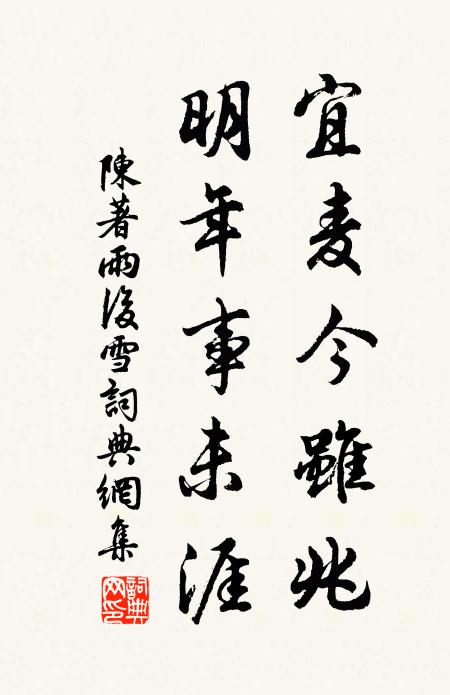 宜麦今雖兆
明年事未涯
陳著雨後雪詞典網集
詞典網印